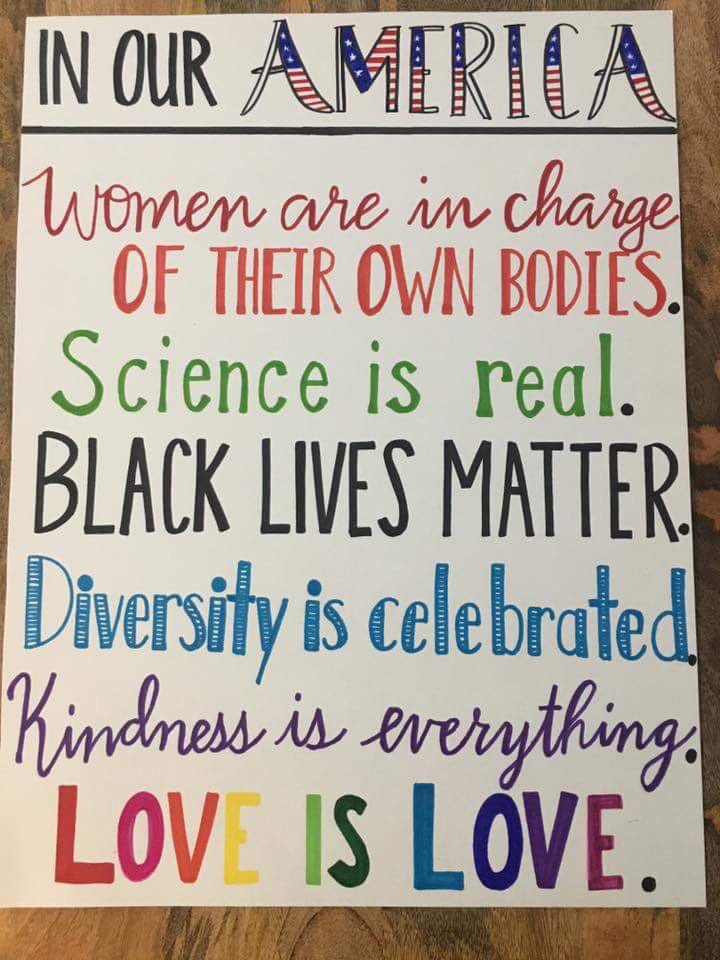 IN OUR AMERICA
Women are in charge
OF THEIR OWN BODIES.
Science is real.
BLACK LIVES MATTER.
Diversity is celebrated.
Kindness is everything.
LOVE IS LOVE.